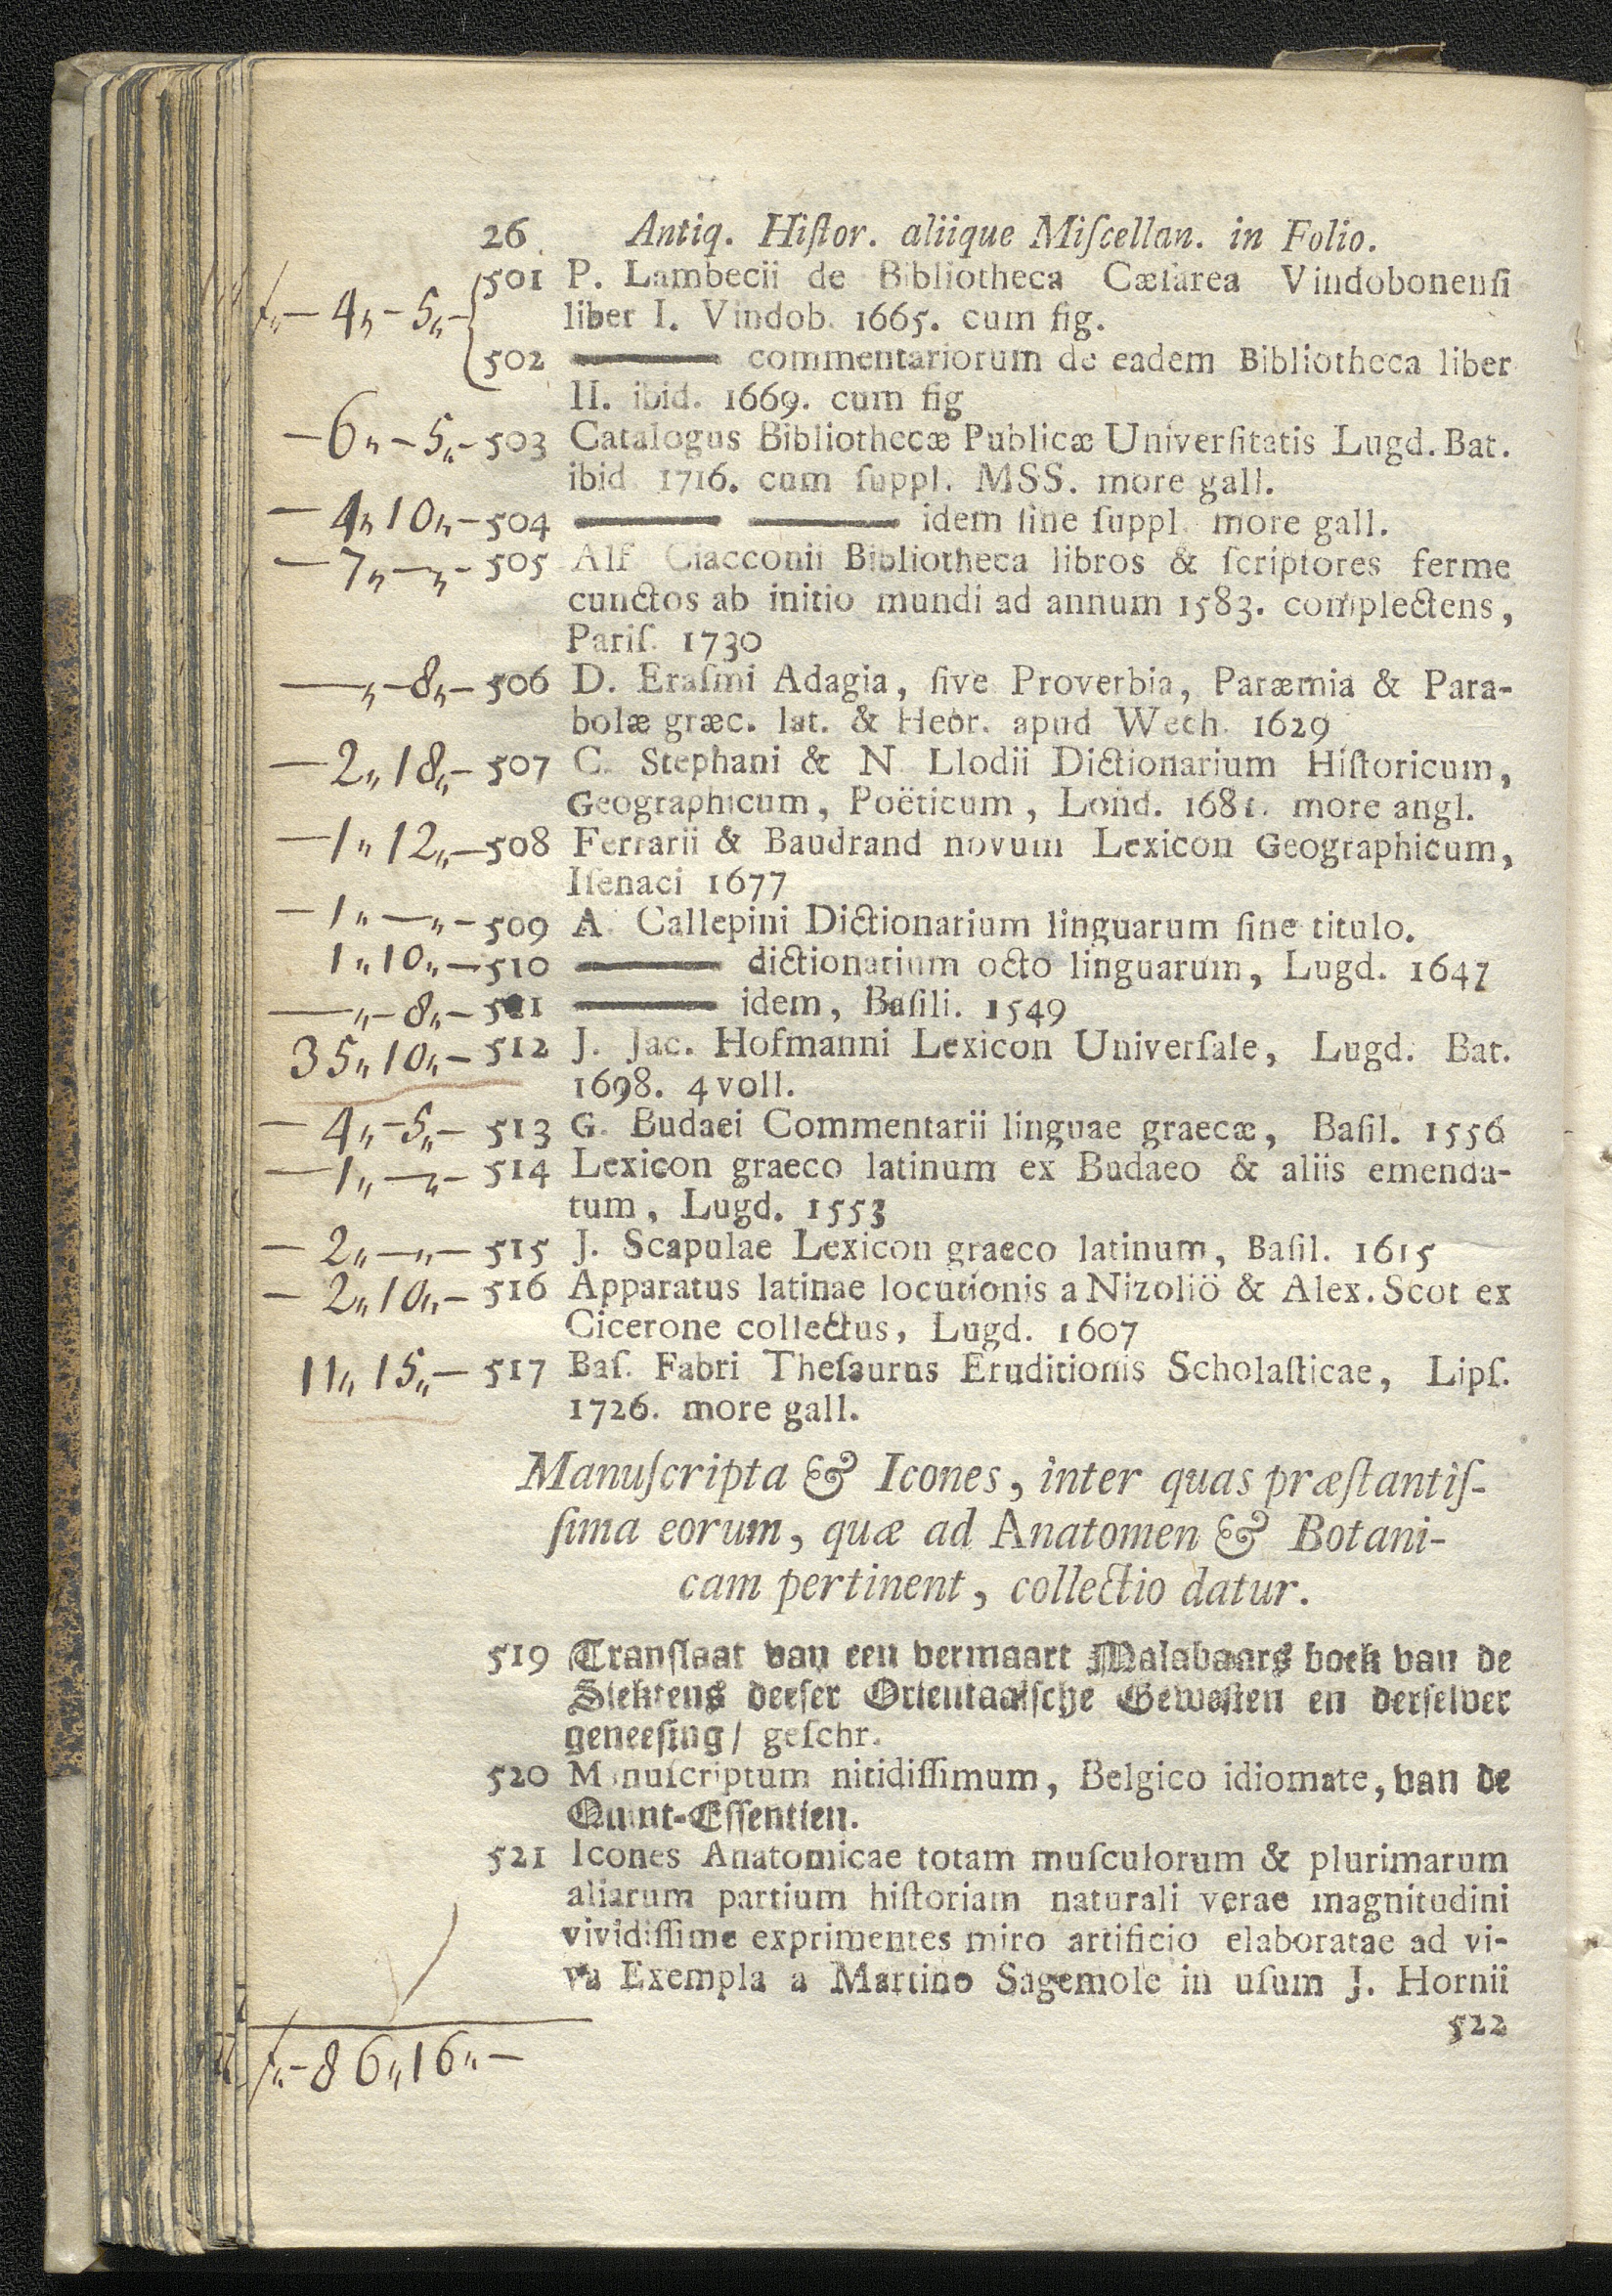 26 Antiq. Hiſtor. aliique Miſcellan. in Folio.
f„— 4„—5„— 501 P. Lambecii de Bibliotheca Cæſarea Vindobonenſi
liber I. Vindob. 1665. cum fig.
502 ——— commentariorum de eadem Bibliotheca liber
II. ibid. 1669. cum fig
—6„—5„— 503 Catalogus Bibliothecæ Publicæ Univerſitatis Lugd. Bat.
ibid. 1716. cum ſuppl. MSS. more gall.
—4„10„— 504 ——— ——— idem ſine ſuppl. more gall.
—7„—„— 505 Alf Ciacconii Bibliotheca libros & ſcriptores ferme
cunctos ab initio mundi ad annum 1583. complectens,
Pariſ. 1730
—„—8„— 506 D. Eraſmi Adagia, ſive Proverbia, Paræmia & Para-
bolæ græc. lat. & Hebr. apud Wech. 1629
—2„18„— 507 C. Stephani & N. Llodii Dictionarium Hiſtoricum,
Geographicum, Poëticum, Lond. 1681. more angl.
—1„12„— 508 Ferrarii & Baudrand novum Lexicon Geographicum,
Iſenaci 1677
—1„—„— 509 A. Callepini Dictionarium linguarum ſine titulo.
1„10„— 510 ——— dictionarium octo linguarum, Lugd. 1647
—„—8„— 511 ——— idem, Baſili. 1549
35„10„— 512 J. Jac. Hofmanni Lexicon Univerſale, Lugd. Bat.
1698. 4 voll.
—4„—5„— 513 G. Budaei Commentarii linguae graecæ, Baſil. 1556
—1„—„— 514 Lexicon graeco latinum ex Budaeo & aliis emenda-
tum, Lugd. 1553
—2„—„— 515 J. Scapulae Lexicon graeco latinum, Baſil. 1615
—2„10„— 516 Apparatus latinae locutionis a Nizolio & Alex. Scot ex
Cicerone collectus, Lugd. 1607
11„15„— 517 Baſ. Fabri Theſaurus Eruditionis Scholaſticae, Lipſ.
1726. more gall.
Manuſcripta & Icones, inter quas præſtantiſ-
ſima eorum, quæ ad Anatomen & Botani-
cam pertinent, collectio datur.
519 Tranſlaat van een vermaart Malabaars boek van de
Siektens deeſer Orientaalſche Gewaſten en derſelver
geneeſing/ geſchr.
520 Manuſcriptum nitidiſſimum, Belgico idiomate, van de
Quint-Eſſentien.
521 Icones Anatomicae totam muſculorum & plurimarum
aliarum partium hiſtoriam naturali verae magnitudini
vividiſſime exprimentes miro artificio elaboratae ad vi-
va Exempla a Martino Sagemole in uſum J. Hornii
522
f„—86„16„—